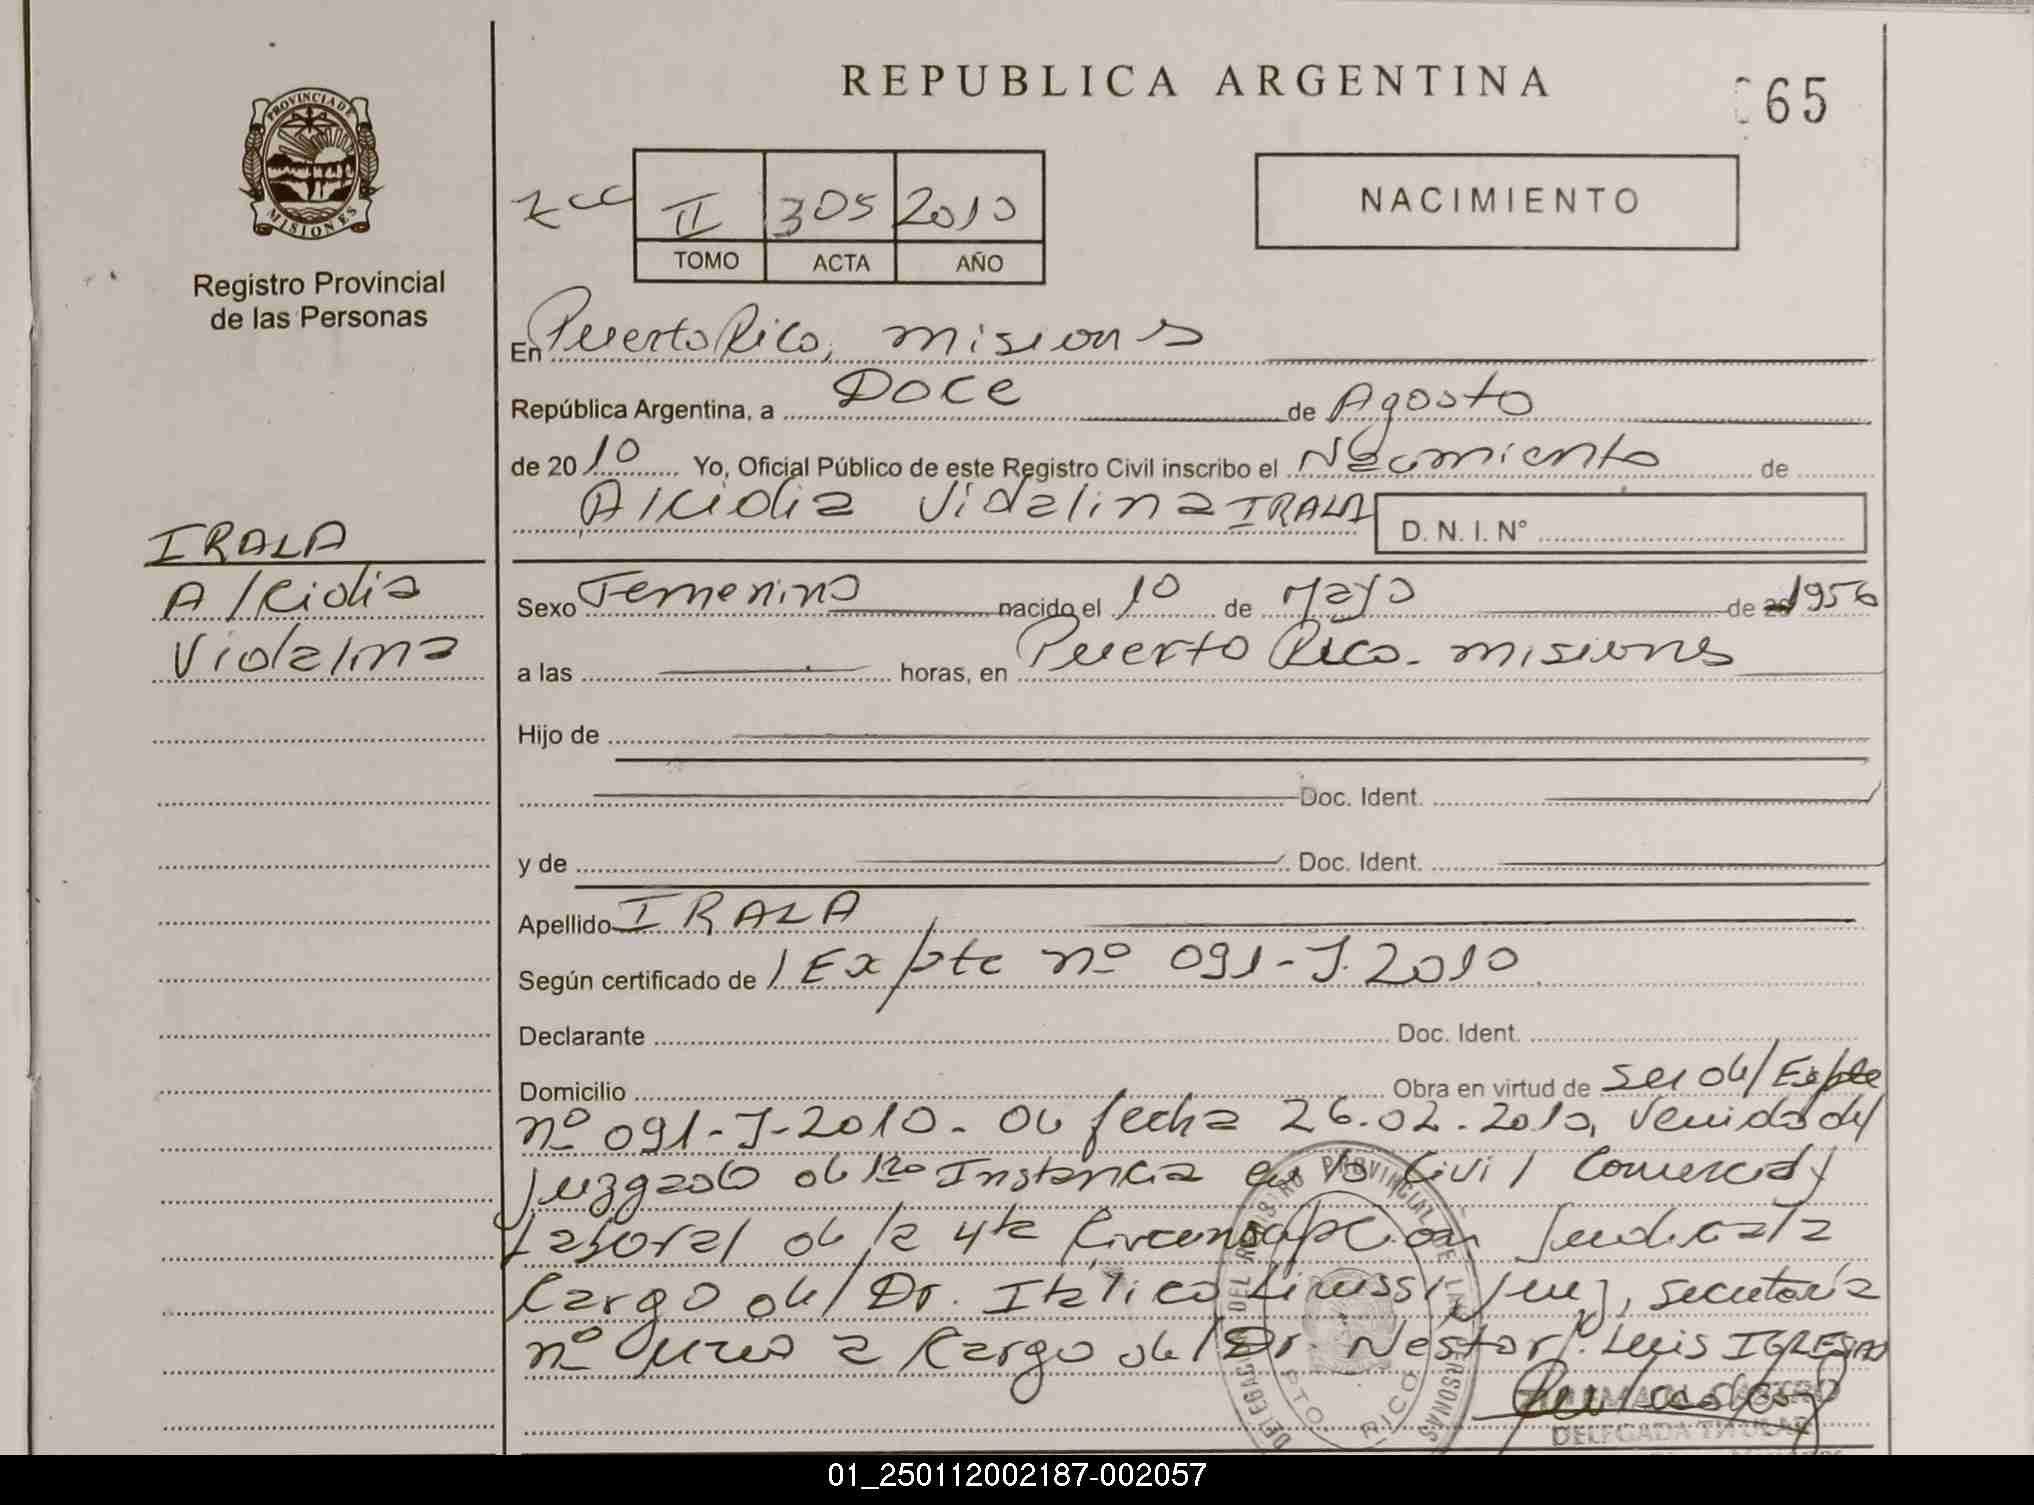 REPUBLICA ARGENTINA
65
PROVINCIA DE MISIONES
Registro Provincial
de las Personas
II 305 2010
TOMO ACTA AÑO
NACIMIENTO
En Puerto Rico, misiones
República Argentina, a Doce de Agosto
de 2010 Yo, Oficial Público de este Registro Civil inscribo el Nacimiento de
Alcidia Vidalina IRALA D. N. I. N°
IRALA
Alcidia
Vidalina
Sexo Femenino nacido el 10 de Mayo de 1956
a las horas, en Puerto Rico. misiones
Hijo de
Doc. Ident.
y de Doc. Ident.
Apellido IRALA
Según certificado de Expte nº 091-J.2010
Declarante Doc. Ident.
Domicilio Obra en virtud de ser del Expte
nº 091-J-2010. de fecha 26.02.2010, venido del
Juzgado de 1ra Instancia en lo Civil Comercial y
Laboral de la 4ta Circunscripcion Judicial a
Cargo del Dr. Italico Linussi, Juez, secretaría
nº uno a Cargo del Dr. Nestor Luis IGLESIAS
DELEGACION DEL REGISTRO PROVINCIAL DE LAS PERSONAS
PTO RICO
DELEGADA TITULAR
01_250112002187-002057